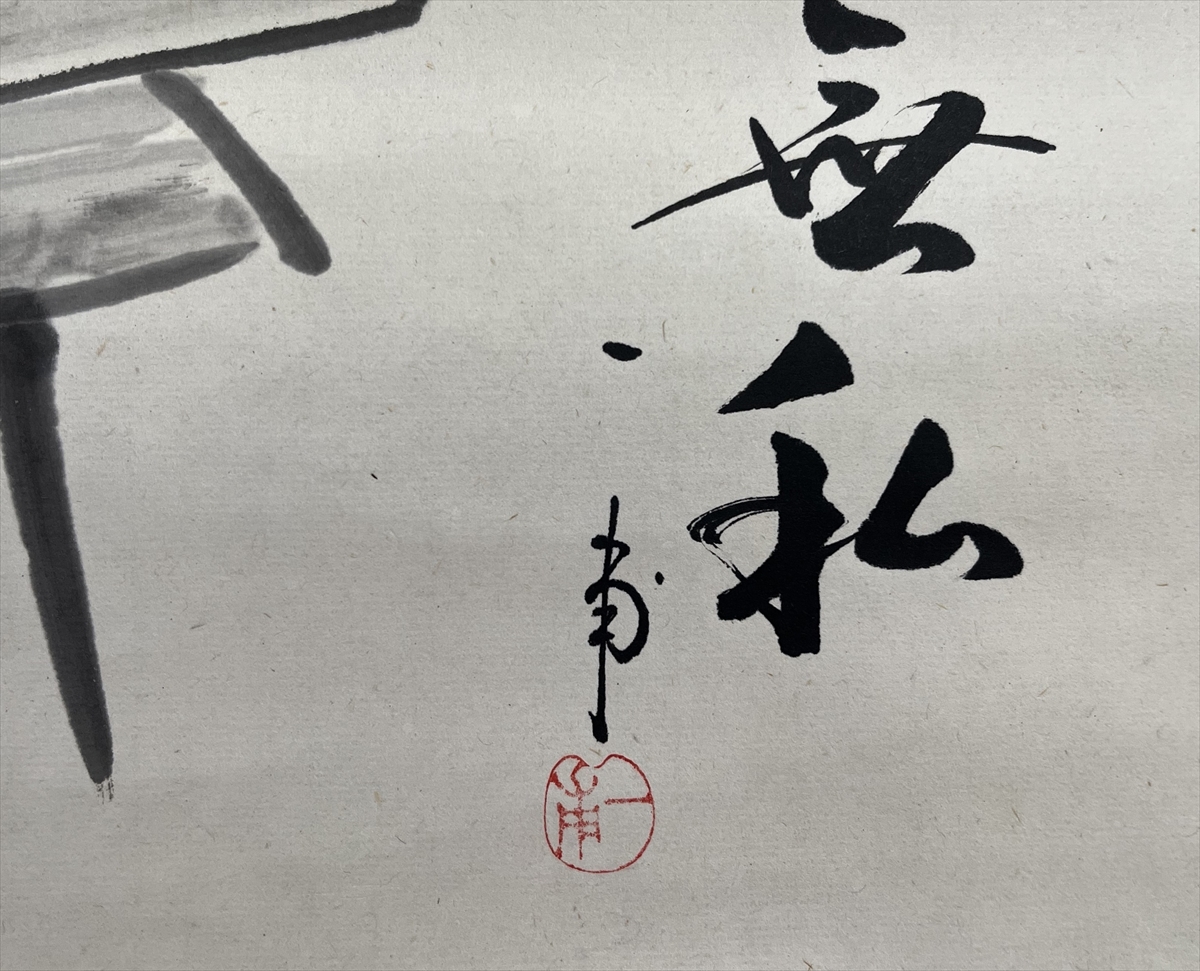 無私
一甫
一甫